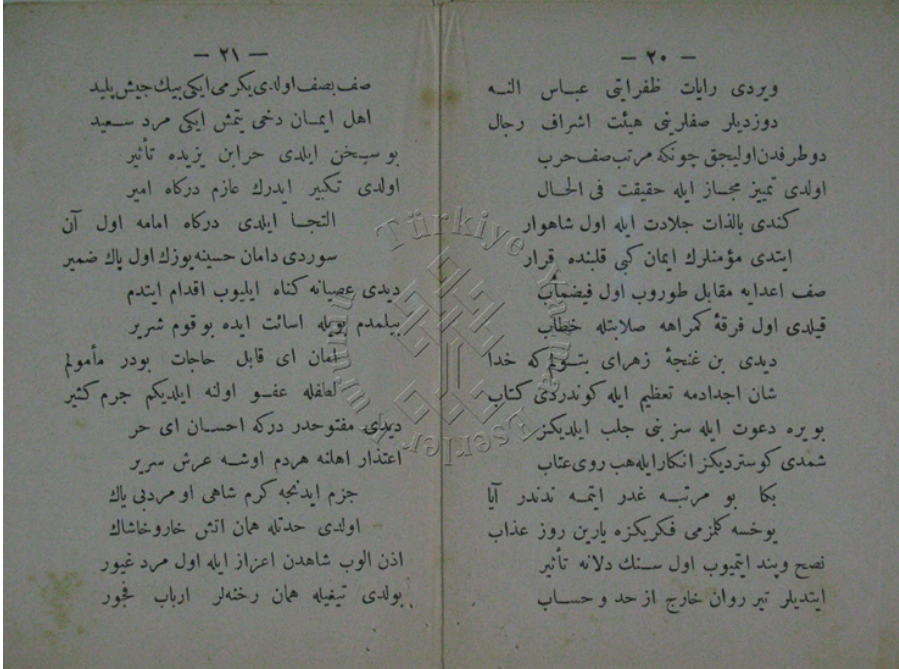 — ٢٠ —
ويردى رايات ظفرايتى عباس النه
دوزديلر صفلرينى هيئت اشراف رجال
دو طرفدن اوليجق چونكه مرتب صف حرب
اولدى تمييز مجاز ايله حقيقت فى الحال
كندى بالذات جلادت ايله اول شاهوار
ايتدى مؤمنلرك ايمان كبى قلبنده قرار
صف اعدايه مقابل طوروب اول فيضمأب
قيلدى اول فرقۀ كمراهه صلابتله خطاب
ديدى بن غنجۀ زهراى بتولم كه خدا
شان اجدادمه تعظيم ايله كوندردى كتاب
بو يره دعوت ايله سز بنى جلب ايلديكز
شمدى كوسترديكز انكار ايله هب روى عتاب
بكا بو مرتبه غدر ايتمه ندندر آيا
يوخسه كلزمى فكريكزه يارين روز عذاب
نصح وپند ايتميوب اول سنك دلانه تأثير
ايتديلر تير روان خارج از حد و حساب
— ٢١ —
صف بصف اولدى يكرمى ايكى بيك جيش پليد
اهل ايمان دخى يتمش ايكى مرد سعيد
بو سخن ايلدى حر ابن يزيده تأثير
اولدى تكبير ايدرك عازم دركاه امير
التجا ايلدى دركاه امامه اول آن
سوردى دامان حسينه يوزك اول پاك ضمير
ديدى عصيانه كناه ايليوب اقدام ايتدم
بيلمدم بويله اسائت ايده بو قوم شرير
امان اى قابل حاجات بودر مأمولم
لطفله عفو اولنه ايلديكم جرم كثير
ديدى مفتوحدر دركه احسان اى حر
اعتذار اهلنه هردم اوشه عرش سرير
جزم ايدنجه كرم شاهى او مردبى باك
اولدى حدتله همان اتش خاروخاشاك
اذن الوب شاهدن اعزاز ايله اول مرد غيور
بولدى تيغيله همان رخنه لر ارباب فجور
Türkiye Yazma Eserler Kurumu